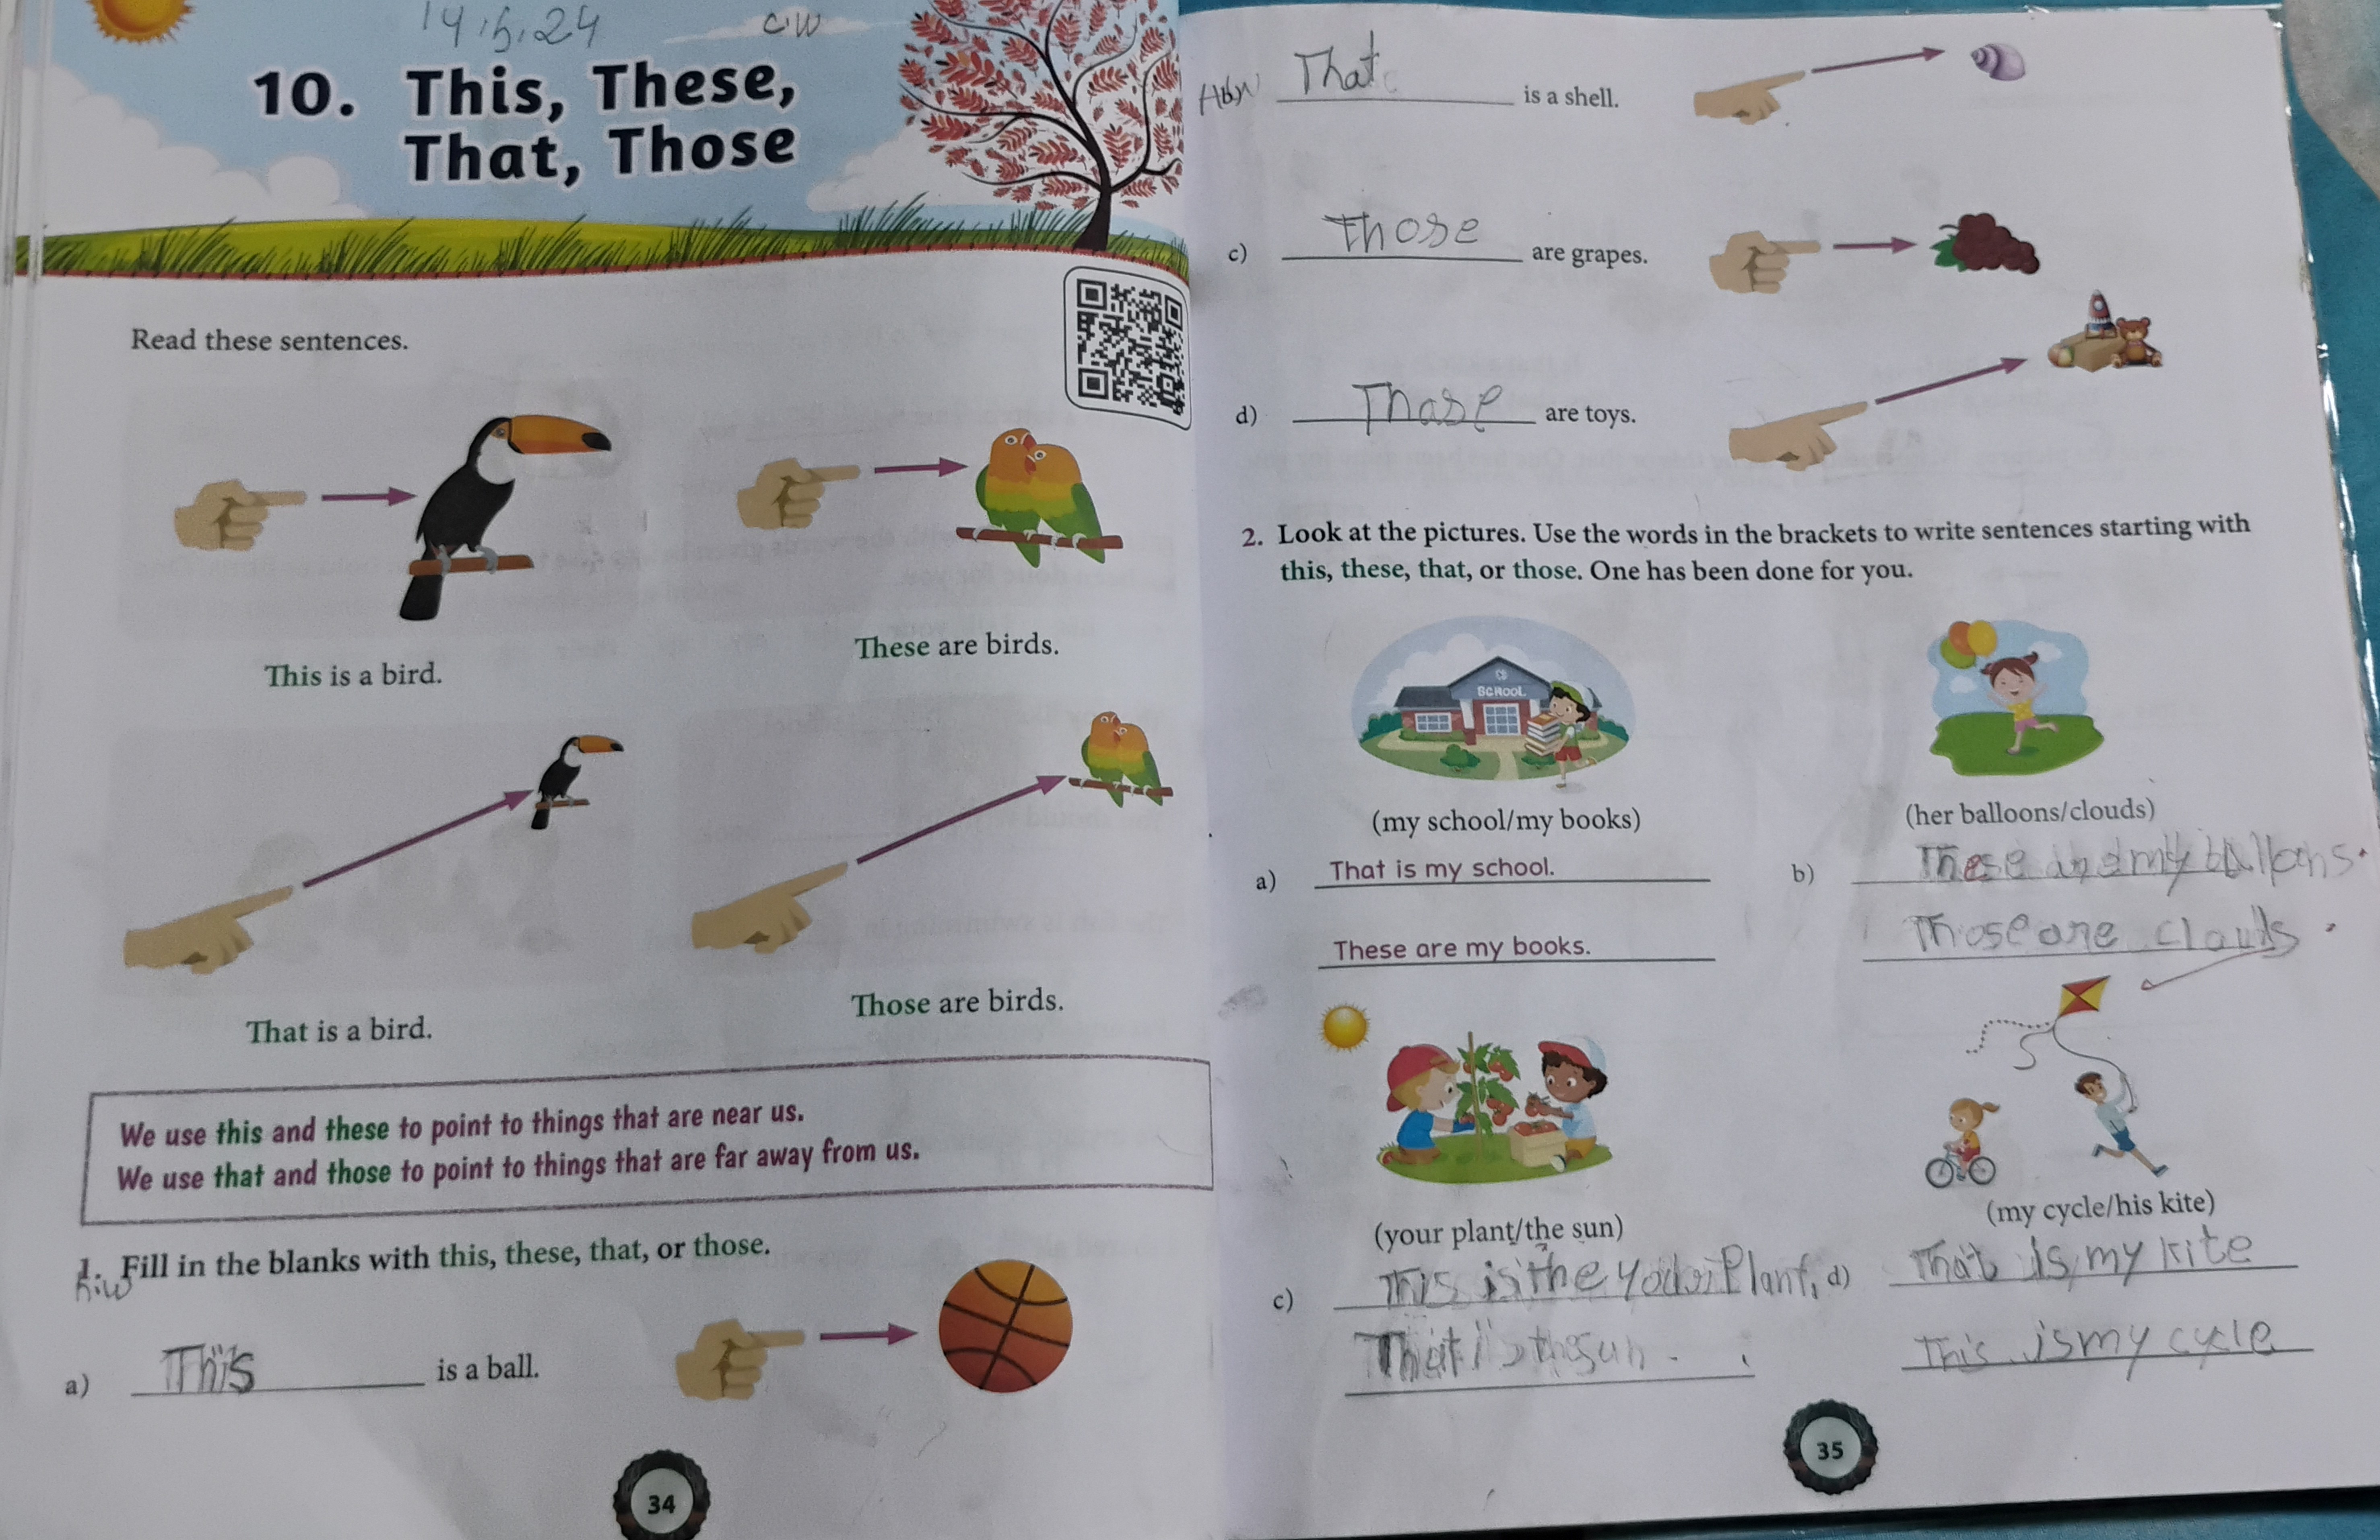 14.5.24 C.W
10. This, These,
That, Those
Read these sentences.
This is a bird.
These are birds.
That is a bird.
Those are birds.
We use this and these to point to things that are near us.
We use that and those to point to things that are far away from us.
1. Fill in the blanks with this, these, that, or those.
h.w
a) This is a ball.
34
That is a shell.
c) Those are grapes.
d) Those are toys.
2. Look at the pictures. Use the words in the brackets to write sentences starting with
this, these, that, or those. One has been done for you.
SCHOOL
(my school/my books)
(her balloons/clouds)
a) That is my school.
These are my books.
b) These my
Those are clouds.
(your plant/the sun)
(my cycle/his kite)
c) This is the Plant,
That is the sun.
d) That is my kite
This is my cycle
35